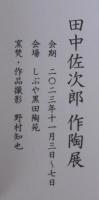 田中佐次郎 作陶展
会期 二〇二三年十一月三日~七日
会場 しぶや黒田陶苑
窯焚・作品撮影 野村知也